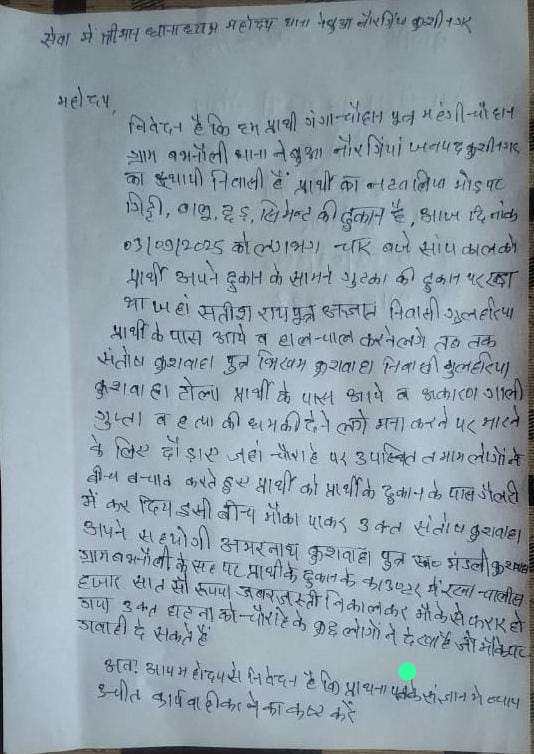 सेवा में श्रीमान थानाध्यक्ष महोदय थाना नेबुआ नौरंगिया कुशीनगर
महोदय,
निवेदन है कि हम प्रार्थी गंगा चौहान पुत्र महंगी चौहान
ग्राम बभनौली थाना नेबुआ नौरंगियां जनपद कुशीनगर
का स्थायी निवासी हैं प्रार्थी का नटवलिया मोड़ पर
गिट्टी, बालु, छड़, सिमेन्ट की दुकान है, आज दिनांक
03/09/2025 को लगभग चार बजे सांय काल को
प्रार्थी अपने दुकान के सामने गुटका की दुकान पर खड़ा
था जहां सतीश राय पुत्र अज्ञात निवासी गुलहरिया
प्रार्थी के पास आये व हाल-चाल करने लगे तब तक
संतोष कुशवाहा पुत्र भिखम कुशवाहा निवासी गुलहरिया
कुशवाहा टोला प्रार्थी के पास आये व अकारण गाली
गुप्ता व हत्या की धमकी देने लगे मना करने पर मारने
के लिए दौड़ाए जहां चौराहे पर उपस्थित तमाम लोगों ने
बीच बचाव करते हुए प्रार्थी को प्रार्थी के दुकान के पास गैलरी
में कर दिये इसी बीच मौका पाकर उक्त संतोष कुशवाहा
अपने सहयोगी अमरनाथ कुशवाहा पुत्र स्व० मंडली कुशवाहा
ग्राम बभनौली के सह पर प्रार्थी के दुकान के काउण्टर में रखा चालीस
हजार सात सौ रूपया जबरजस्ती निकालकर मौके से फरार हो
गया उक्त घटना को चौराहे के कुछ लोगों ने देखा है जो मौके पर
गवाही दे सकते हैं
अतः आप महोदय से निवेदन है कि प्रार्थना के संज्ञान में
उचीत कार्यवाही करने का कष्ट करें